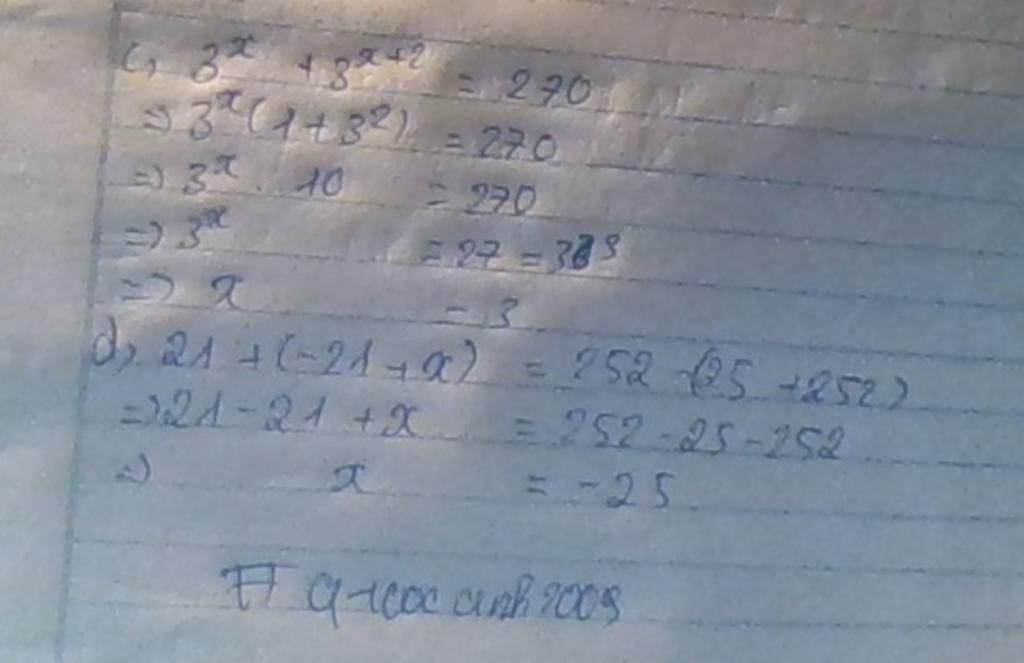 c, 3^x + 3^{x+2} = 270
=> 3^x(1+3^2) = 270
=> 3^x . 10 = 270
=> 3^x = 27 = 3^3
=> x = 3
d, 21 + (-21 + x) = 252 - (25 + 252)
=> 21 - 21 + x = 252 - 25 - 252
=> x = -25